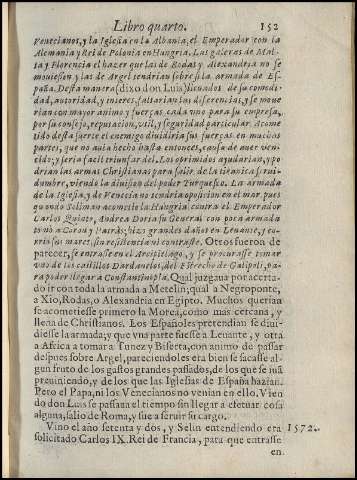 Libro quarto. 152
Venecianos, y la Iglesia en la Albania, el Emperador con la
Alemania y Rei de Polonia en Hungria. Las galeras de Mal-
ta y Florencia el hazer que las de Rodas y Alexandria no se
mouiessen y las de Argel tendrian sobre si la armada de Es-
paña. Desta manera (dixo don Luis) licuados de su comodi-
dad, autoridad, y interes, faltarian las diferencias, y se moue
rian con mayor animo y fuerças cada vno para su empresa,
por su consejo, reputacion, vtil, y seguridad particular. Acome
tido desta suerte el enemigo diuidiria sus fuerças en muchas
partes, que no auia hecho hasta entonces, causa de auer ven-
cido; y seria facil triunfar del. Los oprimidos ayudarian, y po
drian las armas Christianas para salir de la tiranica serui-
dumbre, viendo la diuision del poder Turquesco. La armada
de la Iglesia, y de Venecia no tendria oposicion en el mar, pues
quando Soliman acometio la Hungria contra el Emperador
Carlos Quinto, Andrea Doria su General con poca armada
tomò a Coron y Patràs; hizo grandes daños en Leuante, y co-
rrio sus mares, sin resistencia ni contraste. Otros fueron de
parecer, se entrasse en el Arcipielago, y se procurasse tomar
vno de los castillos Dardanelos, del Estrecho de Galipoli, pa-
ra poder llegar a Constantinopla. Qual juzgaua por acerta-
do ir con toda la armada a Metelin; qual a Negroponte,
a Xio, Rodas, o Alexandria en Egipto. Muchos querian
se acometiesse primero la Morea, como mas cercana, y
llena de Christianos. Los Españoles pretendian se diui-
diesse la armada; y que vna parte fuesse a Leuante, y otra
a Africa a tomar a Tunez y Biserta, con animo de passar
despues sobre Argel, pareciendoles era bien se sacasse al-
gun fruto de los gastos grandes passados, de los que se iuã
preuiniendo, y de los que las Iglesias de España hazian.
Pero el Papa, ni los Venecianos no venian en ello. Vien
do don Luis se passaua el tiempo sin llegar a efetuar cosa
alguna, salio de Roma, y fue a seruir su cargo.
Vino el año setenta y dos, y Selin entendiendo era 1572.
solicitado Carlos IX. Rei de Francia, para que entrasse
en